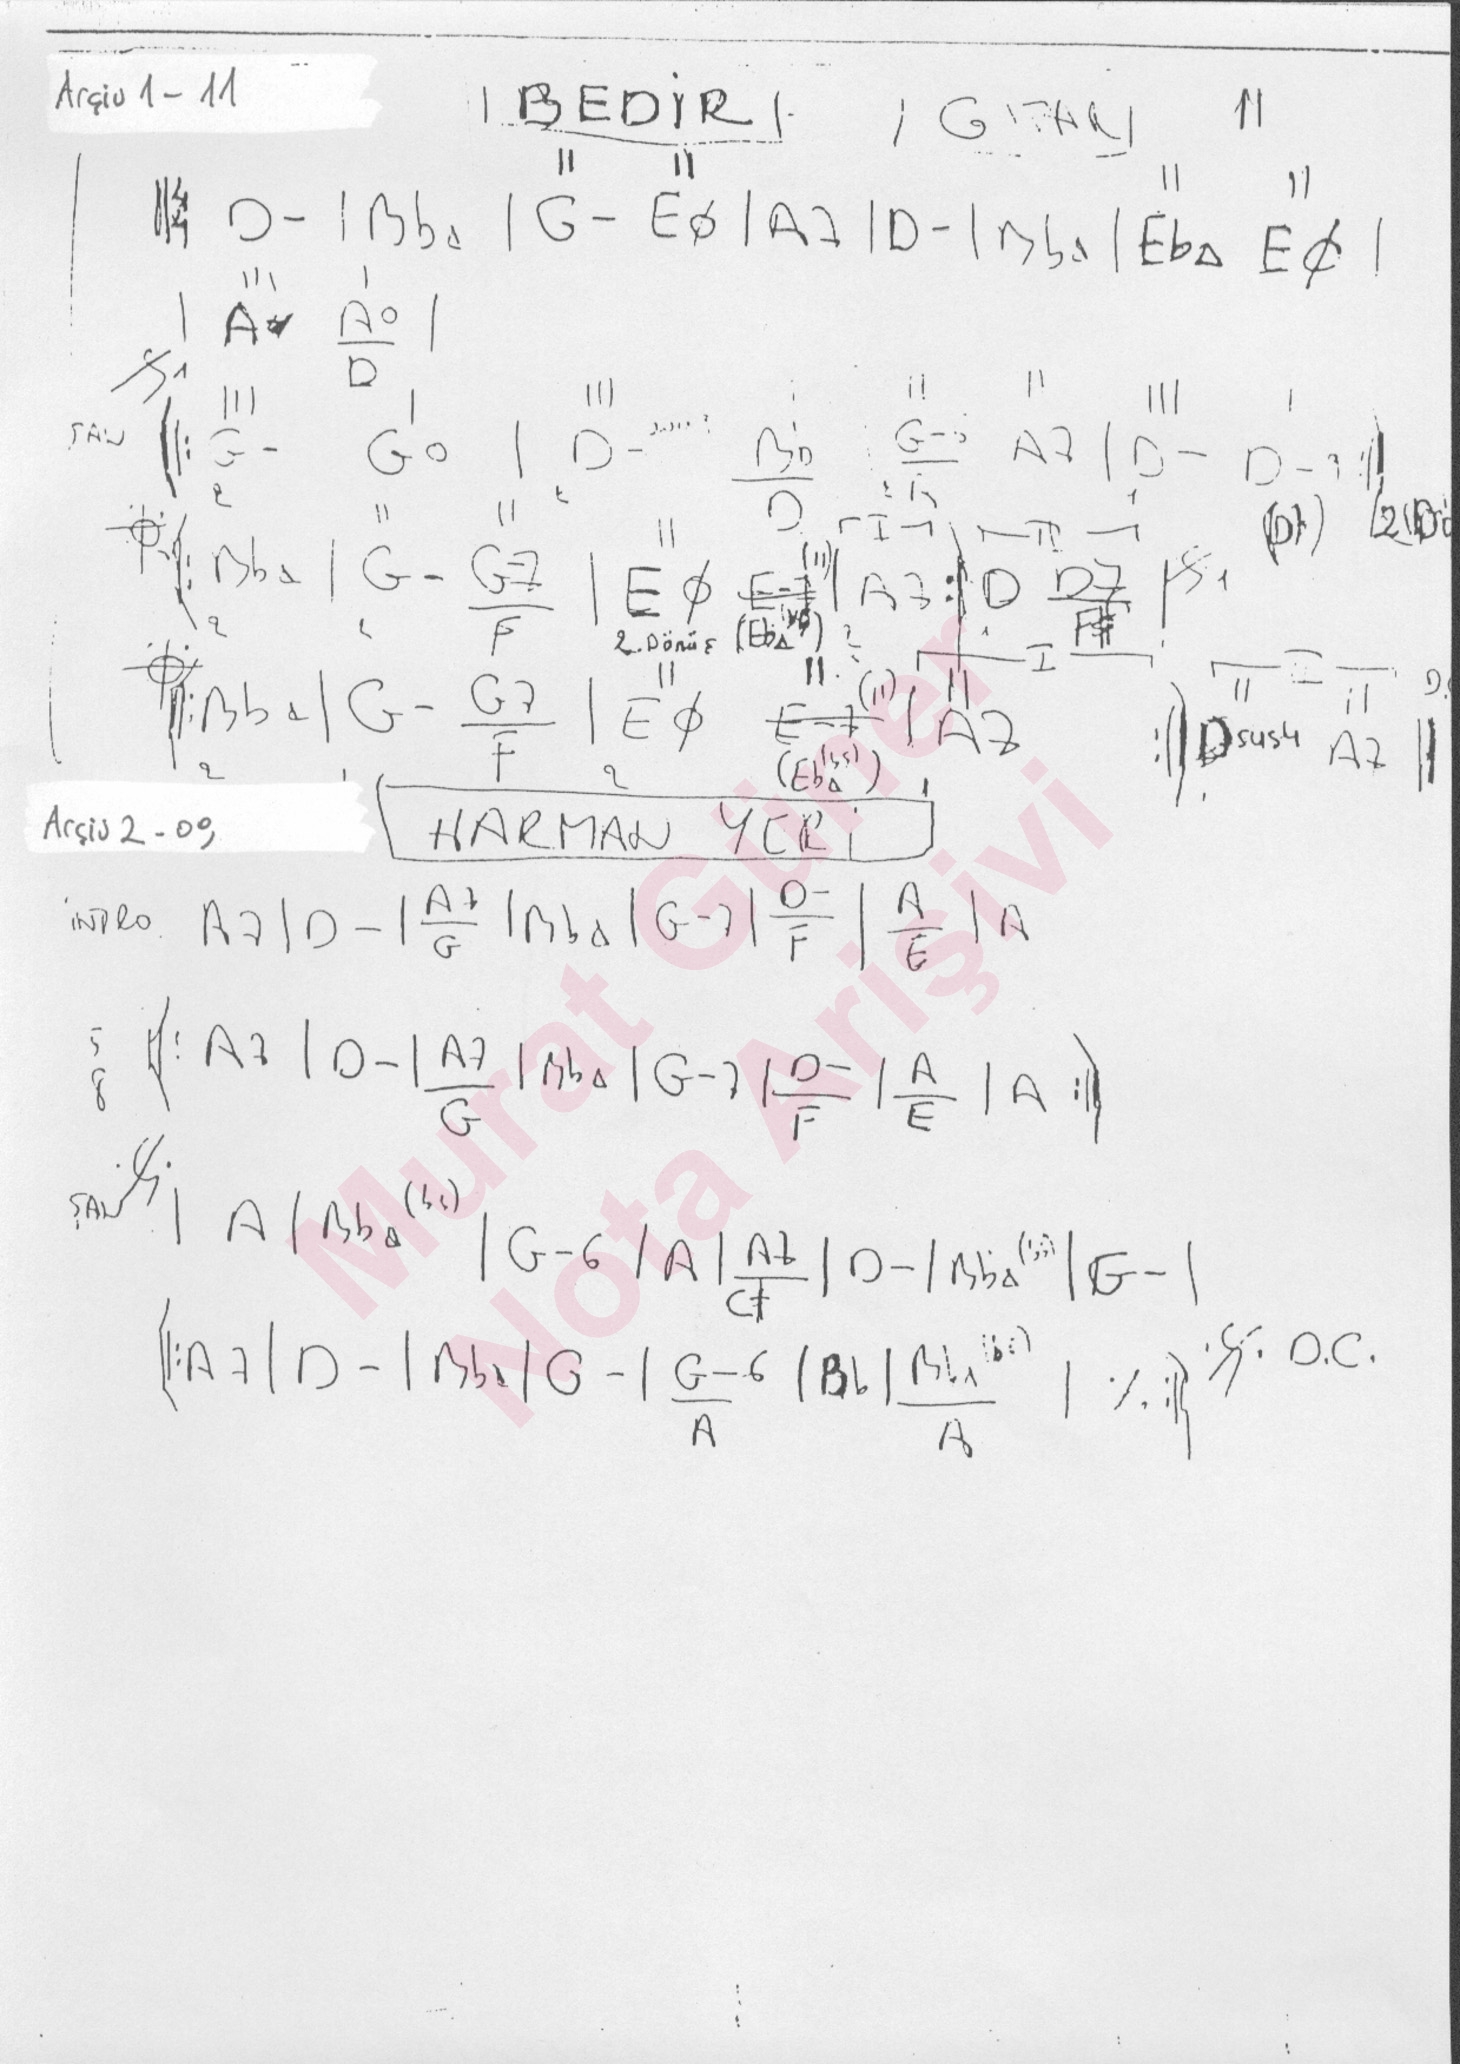 Arşiv 1 - 11
| BEDİR | | GİTAR | 11
D- | BbΔ | G- EØ | A7 | D- | BbΔ | EbΔ EØ |
| A Ao/D |
ŞAN ||: G- Go | D- A7 | D- D-7 :||
(D7)
||: BbΔ | G- G-7/F | EØ E-7 | A7 :|| D D7/F# |
2. Dönüş (EbΔ)
||: BbΔ | G- G7/F | EØ E-7 (11) | A7 :|| Dsus4 A7 ||
(EbΔ)
Arşiv 2 - 09
HARMAN YERİ
İNTRO A7 | D- | A7/G | BbΔ | G-7 | D-/F | A/E | A
5/8 ||: A7 | D- | A7/G | BbΔ | G-7 | D-/F | A/E | A :||
ŞAN | A | BbΔ | G-6 | A | A7/C# | D- | BbΔ | G- |
||: A7 | D- | BbΔ | G- | G-6/A | Bb | BbΔ/A | % :|| D.C.
Murat Güner
Nota Arişivi